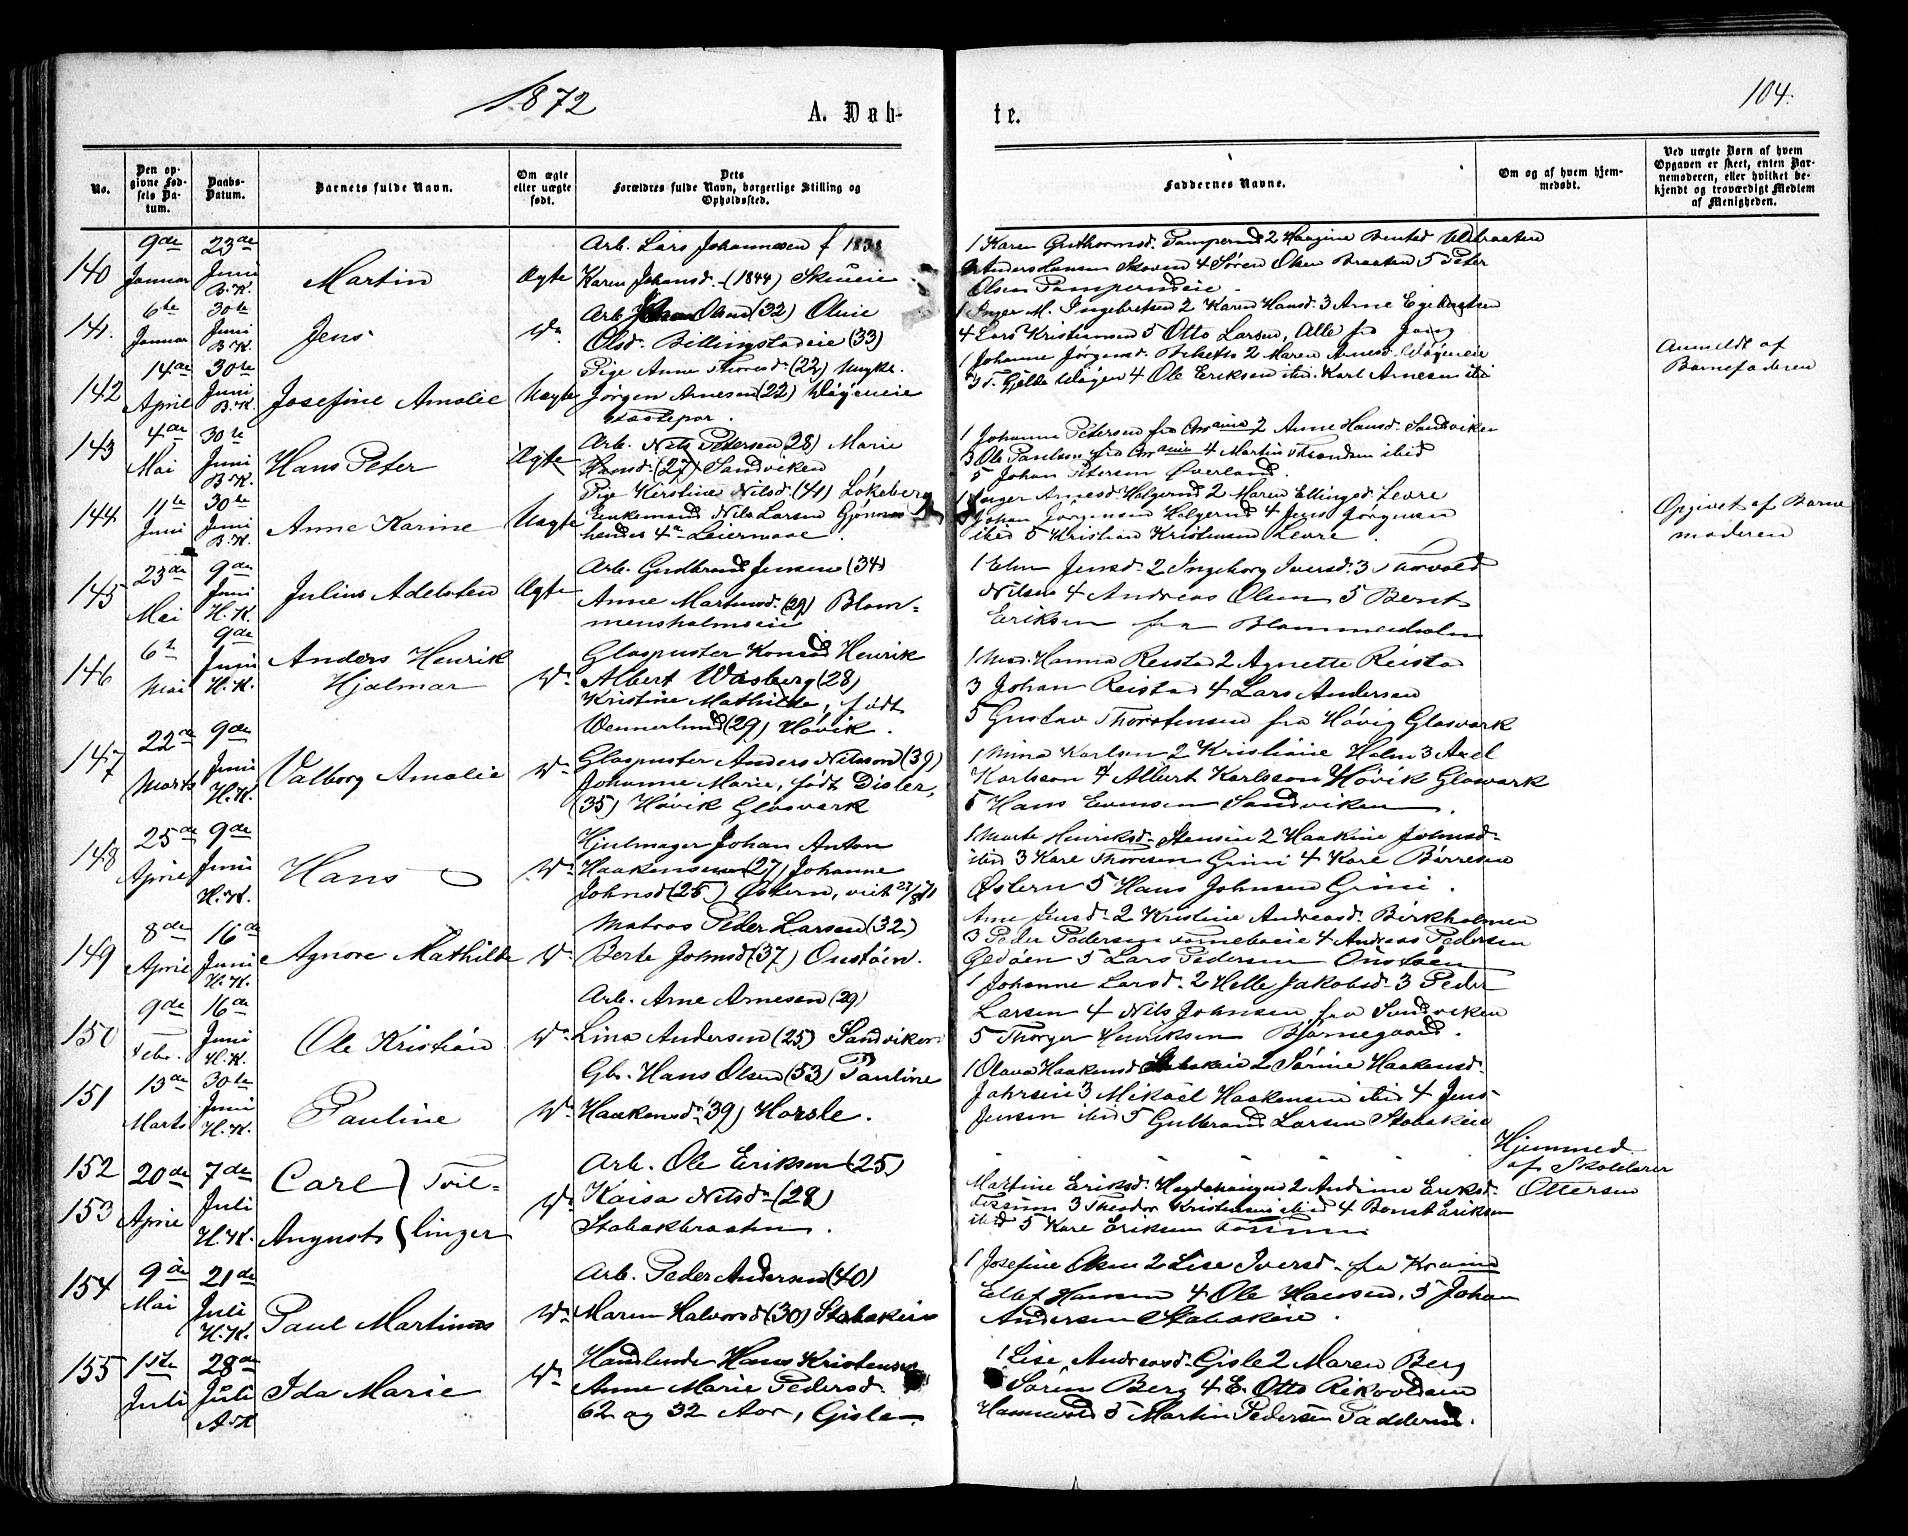 1872
A. Døb-
te.
104.
No.
Den op-
givne Fød-
sels Da-
tum.
Daabs-
Datum.
Barnets fulde Navn.
Om ægte
eller uægte
født.
Dets
Forældres fulde Navn, borgerlige Stilling og
Opholdssted.
Faddernes Navne.
Om og af hvem hjem-
medøbt.
Ved uægte Børn af hvem
Opgaven er skeet, enten Bar-
nemoderen, eller hvilket be-
kjendt og troværdigt Medlem
af Menigheden.
140
9de
Januar
23de
Juni
B.K.
Martin
Ægte
Arb. Lars Johannesen f 1838
Karen Johansd. (1844) Skuieie
1 Karen Guthormsd. 2
Anders Hansen Skoven 4 Søren Olsen Braaten 5 Peter
Olsen
141.
6te
Januar
30te
Juni
B.K.
Jens
Do
Arb. Olsen (32) Oline
Olsd. Billingstadeie (33)
1 Inger M. Ingebretsen 2 Karen Hansd. 3 Arne
4 Lars Kristiansen 5 Otto Larsen, Alle fra Jong
142
14de
April
30te
Juni
B.K.
Josefine Amalie
Uægte
Pige Anne Thoresd. (22) Ungkl.
Jørgen Arnesen (22)
1 Johanne Jørgensd. 2 Maren Arnesd.
4 Ole Eriksen ibid. Karl Arnesen ibid
Anmeldt af
Barnefaderen
143
4de
Mai
30te
Juni
B.K.
Hans Peter
Ægte
Arb. Nils Petersen (28) Marie
Hansd. (27) Sandviken
1 Johanne Petersen fra 2 Anne Hansd. Sandviken
3 Ole Paulsen fra 4 Martin ibid
5 Johan Petersen Øverland
144
11te
Juni
30te
Juni
B.K.
Anne Karine
Uægte
Pige Kirstine Nilsd. (41) Løkeberg
Enkemand Nils Larsen Gjønnes
hendes 4de Leiermaal.
1 Inger Arnesd. 2 Maren Ellingsd. Levre
Johan Jørgensen 4 Jens Jørgensen
ibid 5 Kristian Kristensen Levre.
Opgivet af Barne
moderen
145
23de
Mai
9de
Juni
H.K.
Julius Adelsten
Ægte
Arb. Gudbrand Jensen (34)
Anne Martinsd. (29) Blom-
mensholmseie
1 Elen Jensd. 2 Ingeborg Iversd. 3 Thorvald
Nilsen 4 Andreas Olsen 5 Bernt
Eriksen fra Blommenholm
146
6te
Mai
9de
Juni
H.K.
Anders Henrik
Hjalmar
Do
Glaspuster Konrad Henrik
Albert Wasberg (28)
Kristine Mathilde, født
Wennerlund (29) Høvik.
1 Mad. Hanna Reistad 2 Agnette Reistad
3 Johan Reistad 4 Lars Andersen
5 Gustav Thorstensen fra Høvig Glasværk
147
22de
Marts
9de
Juni
H.K.
Valborg Amalie
Do
Glaspuster Anders Nilsson (39)
Johanne Marie, født Disler,
(35) Høvik Glasværk
1 Mina Karlsen 2 Kristiane Holm 3 Axel
Karlsson 4 Albert Karlsson Høvik Glasværk
5 Hans Evensen Sandviken.
148
25de
April
9de
Juni
H.K.
Hans
Do
Hjulmager Johan Anton
Haakensen (27) Johanne
Johnsd (25) Østern,
1 Marte Henriksd. 2 Haakine Johnsd.
ibid 3 Kare Thoresen Grini 4 Kare Børresen
Østern 5 Hans Johnsen Grini.
149
8de
April
16de
Juni
H.K.
Agnore Mathilde
Do
Matros Peder Larsen (32)
Berte Johnsd (37) Oustøen.
Ane Jensd. 2 Kristine Andreasd. Birkholmen
3 Peder Pedersen 4 Andreas Pedersen
Gedøen 5 Lars Pedersen Oustøen
150
9de
Febr.
16de
Juni
H.K.
Ole Kristian
Do
Arb. Arne Arnesen (29)
Lina Andersen (25) Sandviken
1 Johanne Larsd. 2 Helle Jakobsd. 3 Peder
Larsen 4 Nils Johnsen fra Sandviken
5 Thorger Henriksen Bjørnegaard.
151
13de
Marts
30te
Juni
H.K.
Pauline
Do
Gbr. Hans Olsen (53) Pauline
Haakensd. (39) Horsle.
1 Olava Haakensd. 2 Sørine Haakensd.
3 Mikael Haakensen ibid 4 Jens
Jensen ibid 5 Gulbrand Larsen Stabakeie
152
153
20de
April
7de
Juli
H.K.
Carl } Tvil-
August } linger
Do
Arb. Ole Eriksen (25)
Kaisa Nilsd. (28)
Stabakbraaten.
Martine Eriksd. 2 Andrine Eriksd.
3 Theodor Kristensen ibid 4 Bernt Eriksen
ibid 5 Kare Eriksen
Hjemmed
af Skolelærer
Ottersen
154
9de
Mai
21de
Juli
H.K.
Paul Martinus
Do
Arb. Peder Andersen (40)
Maren Halvorsd (30) Stabakeie
1 Josefine Olsen 2 Lise Iversd. fra
Ellef Hansen 4 Ole Hansen, 5 Johan
Andersen Stabakeie.
155
1ste
Juli
28de
Juli
A.K
Ida Marie
Do
Handlende Hans Kristensen
Anne Marie Pedersd.
62 og 32 Aar, Gisle.
1 Lise Andreasd. Gisle 2 Maren Berg
Søren Berg 4 E. Otto Rikvoldsen
5 Martin Pedersen